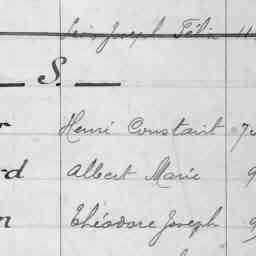 Joseph Félix 11
S.
r Henri Constant 7
rd Albert Marie 9
n Théodore Joseph 9